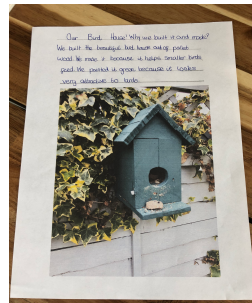 Our Bird House! Why we built it and made?
We built the beautiful bird house out of pallet
wood. We made it because it helps smaller birds
feed. We painted it green because it looks
very attractive to birds.